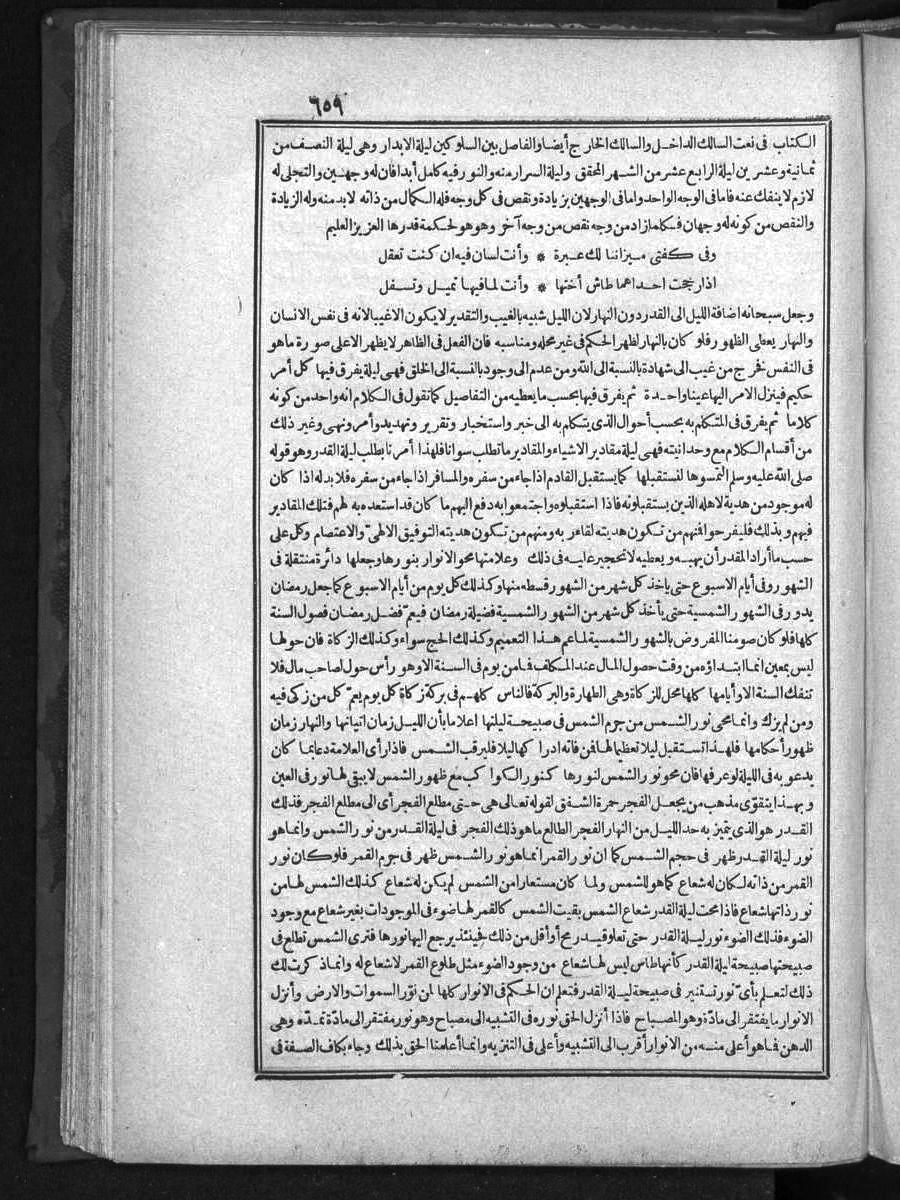 ٦٥٩
الكتاب فى نعت السالك الداخل والسالك الخارج أيضا والفاصل بين السلوكين ليلة الابدار وهى ليلة النصف من
ثمانية وعشرين ليلة الرابع عشر من الشهر المحقق وليلة السرار منه والنور فيه كامل أبدا فان له وجهين والتجلى له
لازم لا ينفك عنه فاما فى الوجه الواحد واما فى الوجهين بزيادة ونقص فى كل وجه فله الكمال من ذاته لا بد منه وله الزيادة
والنقص من كونه له وجهان فكلما زاد من وجه نقص من وجه آخر وهو هو لحكمة قدرها العزيز العليم
وفى كفتى ميزاننا لك عبرة * وأنت لسان فيه ان كنت تعقل
اذا رجحت احداهما طاش أختها * وأنت لما فيها تميل وتسفل
وجعل سبحانه اضافة الليل الى القدر دون النهار لان الليل شبيه بالغيب والتقدير لا يكون الا غيبا لانه فى نفس الانسان
والنهار يعطى الظهور فلو كان بالنهار لظهر الحكم فى غير محله ومناسبه فان الفعل فى الظاهر لا يظهر الا على صورة ما هو
فى النفس فخرج من غيب الى شهادة بالنسبة الى الله ومن عدم الى وجود بالنسبة الى الخلق فهى ليلة يفرق فيها كل أمر
حكيم فينزل الامر اليها عينا واحدة ثم يفرق فيها بحسب ما يعطيه من التفاصيل كما تقول فى الكلام انه واحد من كونه
كلاما ثم يفرق فى المتكلم به بحسب أحوال الذى يتكلم به الى خبر واستخبار وتقرير وتهديد وأمر ونهى وغير ذلك
من أقسام الكلام مع وحدانيته فهى ليلة مقادير الاشياء والمقادير ما تطلب سوانا فلهذا أمرنا بطلب ليلة القدر وهو قوله
صلى الله عليه وسلم التمسوها لنستقبلها كما يستقبل القادم اذا جاء من سفره والمسافر اذا جاء من سفره فلا بد له اذا كان
له موجود من هدية لاهله الذين يستقبلونه فاذا استقبلوه واجتمعوا به دفع اليهم ما كان قد استعده به لهم فتلك المقادير
فيهم وبذلك فليفرحوا فمنهم من تكون هديته لقاء ربه ومنهم من تكون هديته التوفيق الالهىّ والاعتصام وكل على
حسب ما أراد المقدر أن يهبه ويعطيه لا تحجير عليه فى ذلك وعلامتها محو الانوار بنورها وجعلها دائرة منتقلة فى
الشهور وفى أيام الاسبوع حتى ياخذ كل شهر من الشهور قسطه منها وكذلك كل يوم من أيام الاسبوع كما جعل رمضان
يدور فى الشهور الشمسية حتى يأخذ كل شهر من الشهور الشمسية فضيلة رمضان فيعمّ فضل رمضان فصول السنة
كلها فلو كان صومنا المفروض بالشهور الشمسية لما عم هذا التعميم وكذلك الحج سواء وكذلك الزكاة فان حولها
ليس بمعين انما ابتداؤه من وقت حصول المال عند المكلف فما من يوم فى السنة الا وهو رأس حول لصاحب مال فلا
تنفك السنة الا وأيامها كلها محل للزكاة وهى الطهارة والبركة فالناس كلهم فى بركة زكاة كل يوم يعمّ كل من زكى فيه
ومن لم يزك وانما محى نور الشمس من جرم الشمس فى صبيحة ليلتها اعلاما بأن الليل زمان اتيانها والنهار زمان
ظهور أحكامها فلهذا تستقبل ليلا تعظيما لها فمن فاته ادراكها ليلا فليرقب الشمس فاذا رأى العلامة دعا بما كان
يدعو به فى الليلة لو عرفها فان محو نور الشمس لنورها كنور الكواكب مع ظهور الشمس لا يبقى لها نور فى العين
وبهذا يتقوى مذهب من يجعل الفجر حمرة الشفق لقوله تعالى هى حتى مطلع الفجر أى الى مطلع الفجر فذلك
القدر هو الذى يتميز به حد الليل من النهار الفجر الطالع ما هو ذلك الفجر فى ليلة القدر من نور الشمس وانما هو
نور ليلة القدر ظهر فى حجم الشمس كما ان نور القمر انما هو نور الشمس ظهر فى جرم القمر فلو كان نور
القمر من ذاته لكان له شعاع كما هو للشمس ولما كان مستعارا من الشمس لم يكن له شعاع كذلك الشمس لها من
نور ذاتها شعاع فاذا محت ليلة القدر شعاع الشمس بقيت الشمس كالقمر لها ضوء فى الموجودات بغير شعاع مع وجود
الضوء فذلك الضوء نور ليلة القدر حتى تعلو قيد رمح أو أقل من ذلك فحينئذ يرجع اليها نورها فترى الشمس تطلع فى
صبيحتها صبيحة ليلة القدر كأنها طاس ليس لها شعاع من وجود الضوء مثل طلوع القمر لا شعاع له وانما ذكرت لك
ذلك لتعلم بأىّ نور تستنير فى صبيحة ليلة القدر فتعلم ان الحكم فى الانوار كلها لمن نوّر السموات والارض وأنزل
الانوار ما يفتقر الى مادّة وهو المصباح فاذا أنزل الحق نوره فى التشبيه الى مصباح وهو نور مفتقر الى مادّة تمدّه وهى
الدهن فما هو أعلى منه من الانوار أقرب الى التشبيه وأعلى فى التنزيه وانما أعلمنا الحق بذلك وجاء بكاف الصفة فى